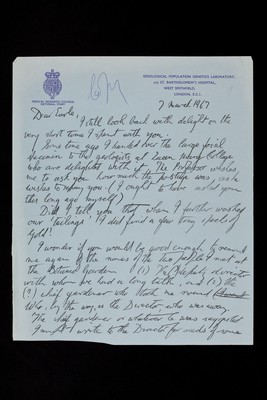 MEDICAL RESEARCH COUNCIL
SEROLOGICAL POPULATION GENETICS LABORATORY,
c/o ST. BARTHOLOMEW'S HOSPITAL,
WEST SMITHFIELD,
LONDON, E.C.1.
7 March 1967
Dear
I still look back with delight on the
very short time I spent with you.
Some time ago I handed over the large fossil
specimen to the geologists at Queen Mary College
who are delighted with it. The Professor wishes
me to ask you how much the postage was, as he
wishes to repay you. (I ought to have asked you
this long ago myself.)
Did I tell you that when I further washed
our 'tailings' I did find a few tiny specks of
gold!
I wonder if you would be good enough to remind
me again of the names of the two people I met at
the Botanic Gardens (1) The Deputy Director
with whom we had a long talk, and (2) the
(?) chief gardener who took me round
Who, by the way, is the Director, who was away.
The chief gardener or whatever he was suggested
I might write to the Director for seeds of some